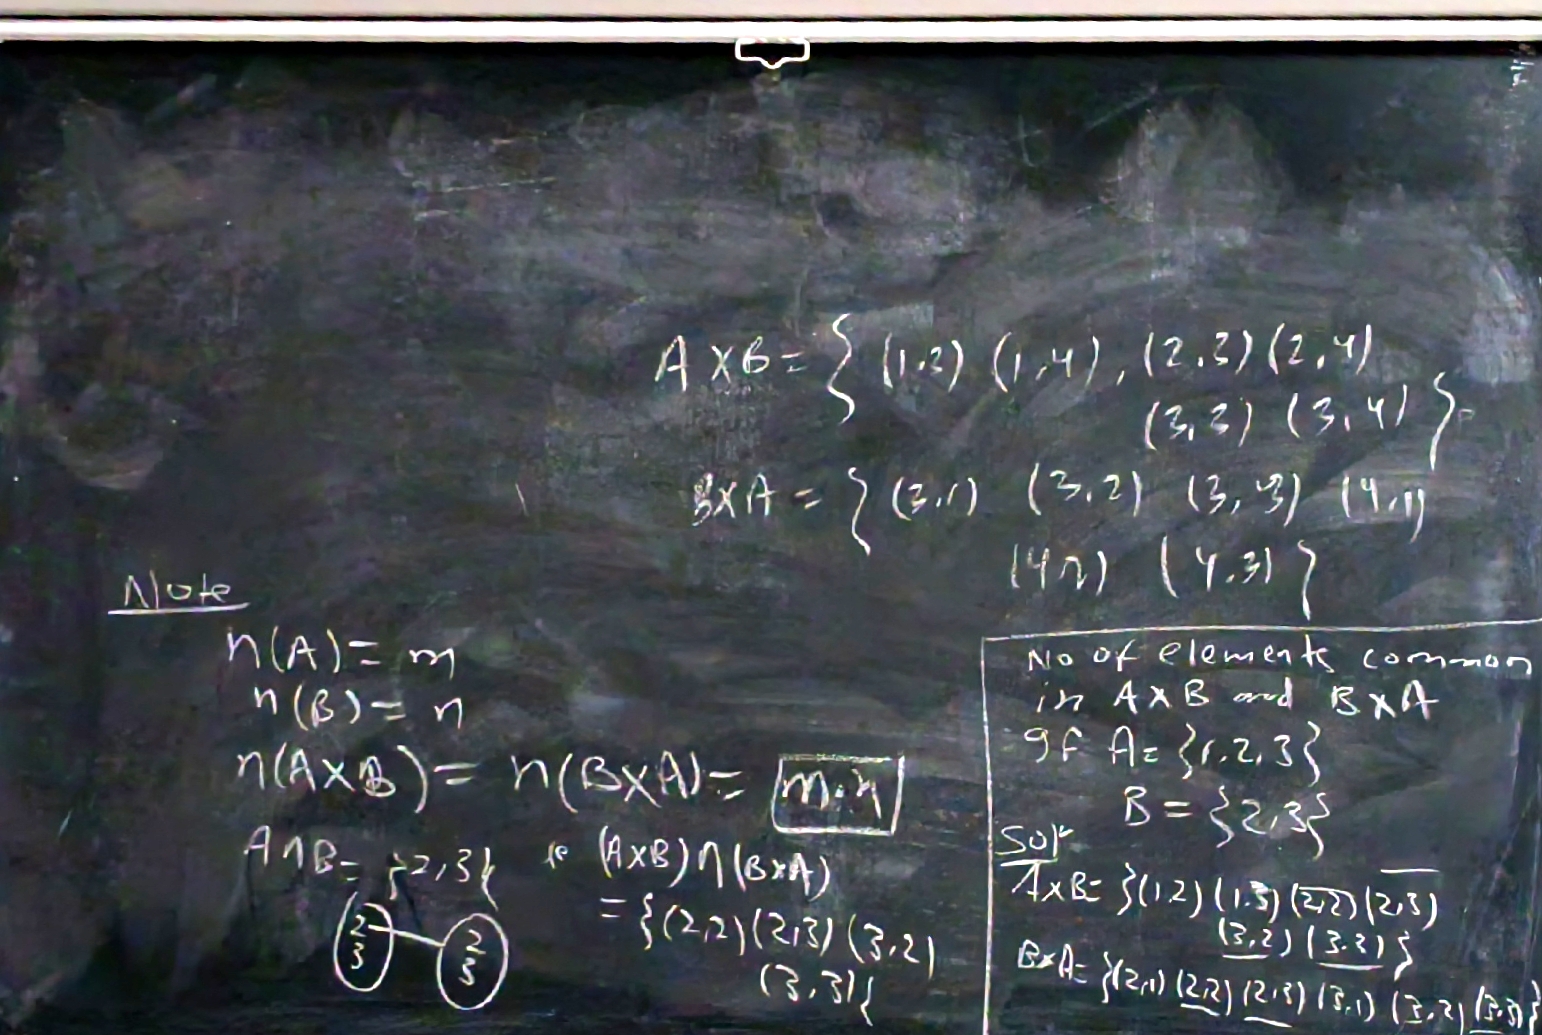 A×B = { (1,3) (1,4), (2,3) (2,4)
(3,3) (3,4) }
B×A = { (3,1) (3,2) (3,3) (4,1)
(4,2) (4,3) }
Note
n(A) = m
n(B) = n
n(A×B) = n(B×A) = m.n
A∩B = {2,3}
(A×B)∩(B×A)
= {(2,2) (2,3) (3,2)
(3,3)}
2 2
3 3
No of elements common
in A×B and B×A
If A = {1,2,3}
B = {2,3}
Solⁿ
A×B = {(1,2) (1,3) (2,2) (2,3)
(3,2) (3,3)}
B×A = {(2,1) (2,2) (2,3) (3,1) (3,2) (3,3)}